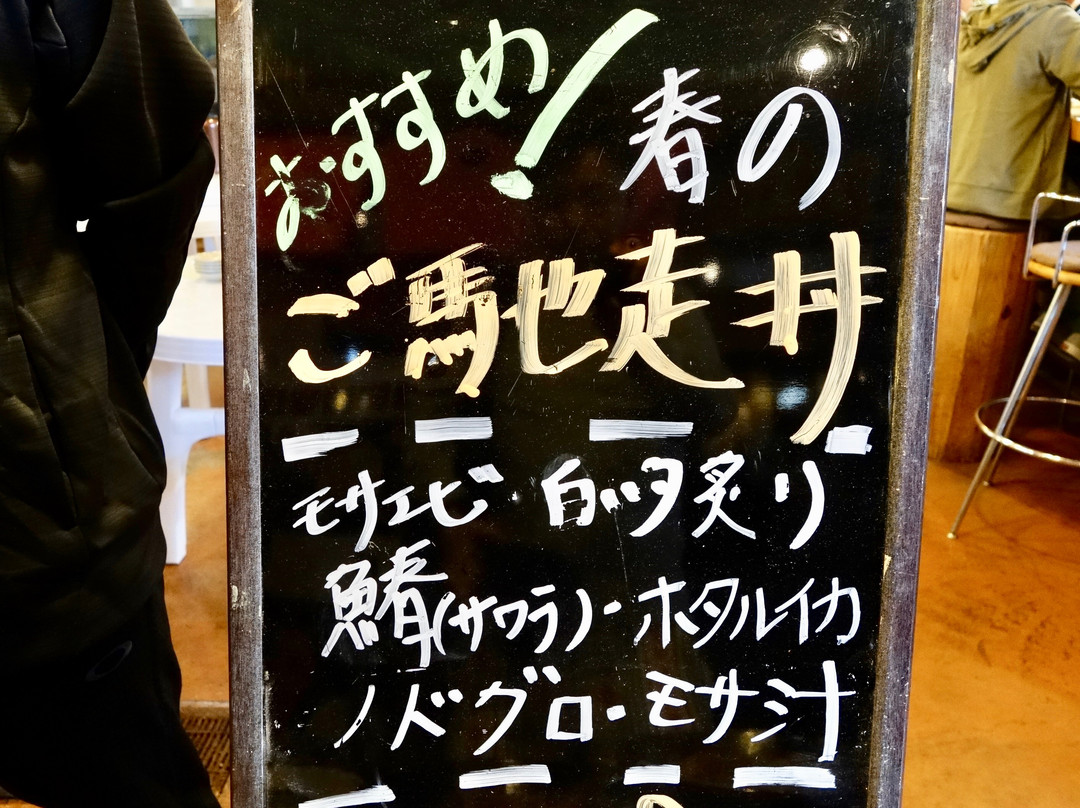 おすすめ! 春の
ご馬也走丼
モサエビ・白バタ炙り
鰆(サワラ)・ホタルイカ
ノドグロ・モサ汁